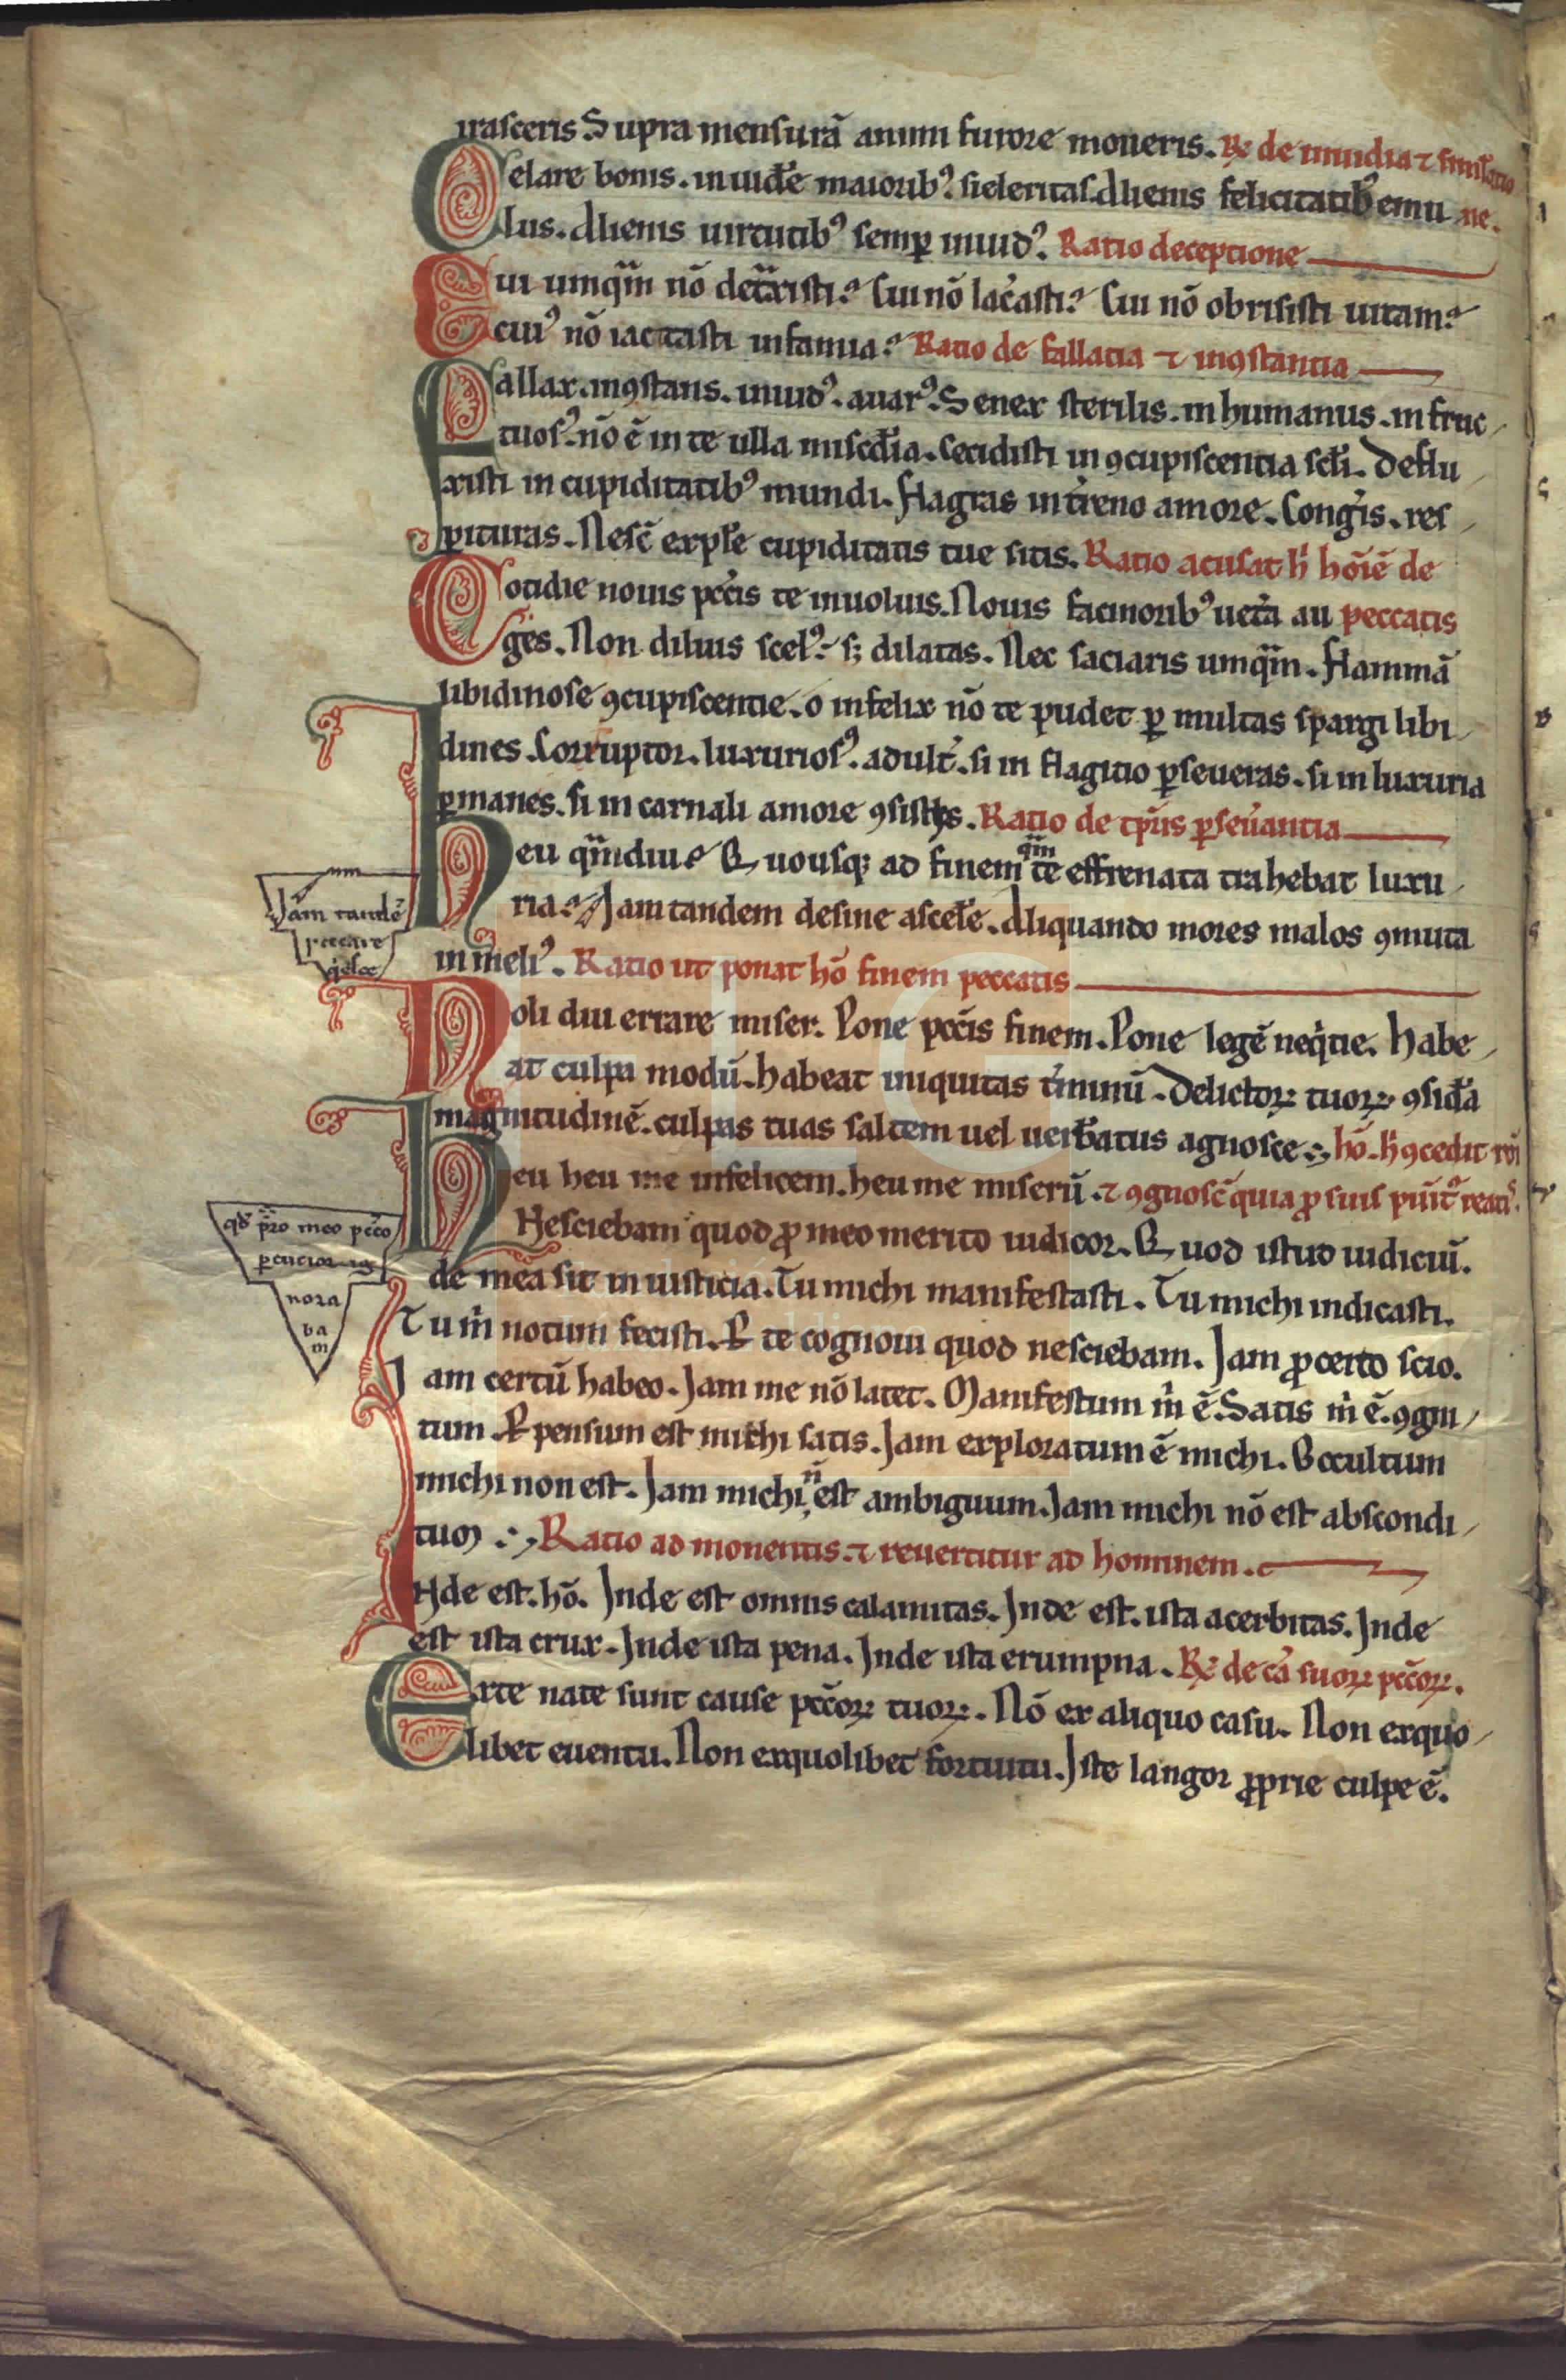 irasceris Supra mensurā animi furore moueris. R̄ de inuidia ⁊ simłatio
Celare bonis. inuidēe maioribꝰ. sceleritas. Alienis felicitatibꝰ emu ne.
lus. Alienis uirtutibꝰ semꝑ inuidꝰ. Ratio deceptione
Cui umq̄m nō det̃xisti? Cui nō lac̃asti? Cui nō obrisisti uitam?
cuiꝰ nō iactasti infamia? Ratio de fallacia ⁊ inꝯstantia
Fallax. inꝯstans. inuidꝰ. auarꝰ. Senex sterilis. inhumanus. infruc
tuosꝰ. nō ē in te ulla misc̄dia. Cecidisti in ꝯcupiscentia scłi. Deflu
xisti in cupiditatibꝰ mundi. flagras int̃reno amore. Conǵis. res
pituras. Nesc̄ expłe cupiditatis tue sitis. Ratio acusat h̓ hōiē de
Cotidie nouis pc̄c̃is te inuoluis. Nouis facinoribꝰ uet̃a au peccatis
ges. Non diluis scelꝰ. sꝫ dilatas. Nec saciaris umq̄m. flammā
libidinose ꝯcupiscentie. o infelix nō te pudet ꝑ multas spargi libi
dines. Corruptor. luxuriosꝰ. adułt. si in flagitio ꝑseueras. si in luxuria
ꝑmanes. si in carnali amore ꝯsistis. Ratio de tp̄ris ꝑseũantia
Heu q̄mdiu? Quousqꝫ ad finem q̄m te effrenata trahebat luxu
ria? Jam tandem desine ascełe. Aliquando mores malos ꝯmuta
Jam tandē
peccare
in meliꝰ. Ratio ut ponat hō finem peccatis
Noli diu errare miser. Pone pcc̄is finem. Pone legē neq̇tie. habe
at culpa modū. habeat iniquitas t̃minū. Delictoꝝ tuoꝝ ꝯsid̃a
magnitudinē. culpas tuas saltem uel uerb̃atus agnosce. hō. h̓ ꝯcedit rōi
Heu heu me infelicem. heu me miserū. ⁊ ꝯgnosc̄ quia ꝓ suis punit̃ reatiꝰ.
Nesciebam quod ꝓ meo merito iudicor. Quod istud iudiciū.
qd̄ p̄ro meo pcc̄o
ꝑcucior ig
nora
ba
m
de mea sit iniusticia. Tu michi manifestasti. Tu michi indicasti.
Tu m̓ notum fecisti. P te cognoui quod nesciebam. Jam ꝓ certo scio.
J am certū habeo. Jam me nō latet. Manifestum m̓ ē. Satis m̓ ē. ꝯgni
tum. Ppensum est michi satis. Jam exploratum ē michi. Occultum
michi non est. Jam michi n̄ est ambiguum. Jam michi nō est abscondi
tum. Ratio ad monentis. ⁊ reuertitur ad hominem.
Inde est. hō. Inde est omnis calamitas. Inde est. ista acerbitas. Inde
est ista crux. Inde ista pena. Inde ista erumpna. R̄ de cã suoꝝ pcc̄oꝝ.
Exte nate sunt cause pcc̄oꝝ tuoꝝ. Nō ex aliquo casu. Non exquo
libet euentu. Non exquolibet fortuitu. Iste langor ꝓprie culpe ē.